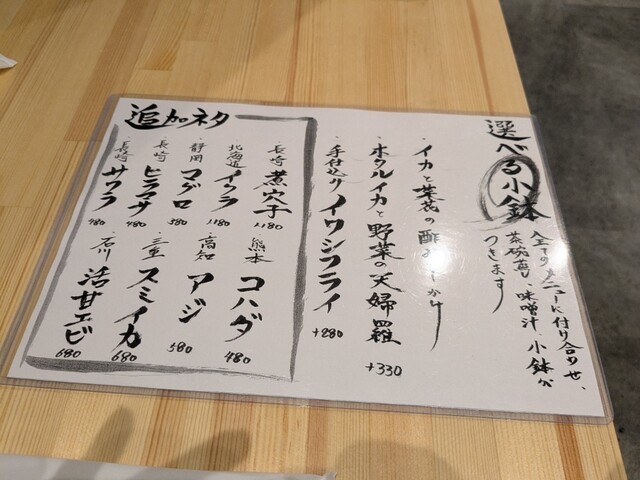 選べる小鉢
全てのメニューに付け合わせ、
茶碗蒸し、味噌汁、小鉢が
つきます
・イカと菜花の酢みそかけ
・ホタルイカと野菜の天婦羅
+330
・手仕込みイワシフライ
+280
追加ネタ
・長崎 煮穴子 1180
・北海道 イクラ 1180
・静岡 マグロ 380
・長崎 ヒラマサ 480
・長崎 サワラ 480
・熊本 コハダ 480
・高知 アジ 580
・三重 スミイカ 680
・石川 活甘エビ 680